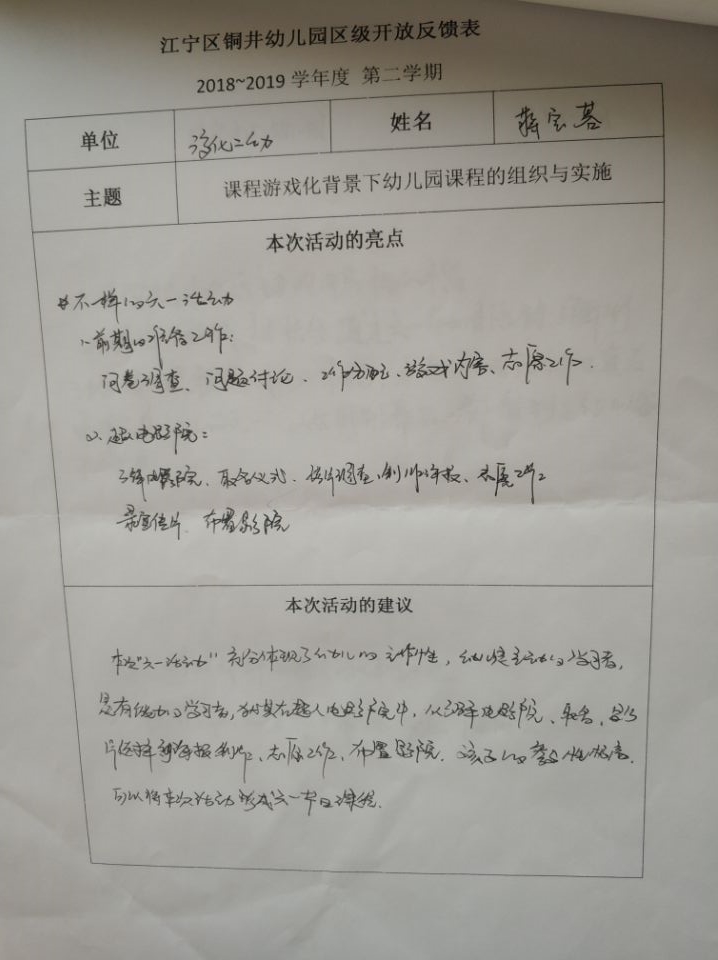 江宁区铜井幼儿园区级开放反馈表
2018~2019 学年度 第二学期
单位 淳化二幼 姓名 蒋宝基
主题 课程游戏化背景下幼儿园课程的组织与实施
本次活动的亮点
不一样的六一活动
1、前期的准备工作:
问卷调查、问题讨论、工作分配、游戏内容、志愿工作.
电影院:
了解电影院、取名仪式、调查、制作海报、志愿工作
录宣传片、布置影院
本次活动的建议
本次"六一活动"充分体现了幼儿的主体性,主动的学习者,
是有能力的学习者,尤其在超人电影院中,从了解电影院、取名、影
片选择到海报制作、志愿工作、布置影院.孩子的参与性极高.
可以将本次活动形成六一节日课程.